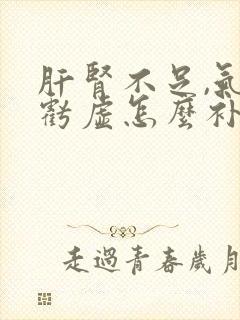 肝腎不足,氣
虧虛怎麼补
走過青春歲月